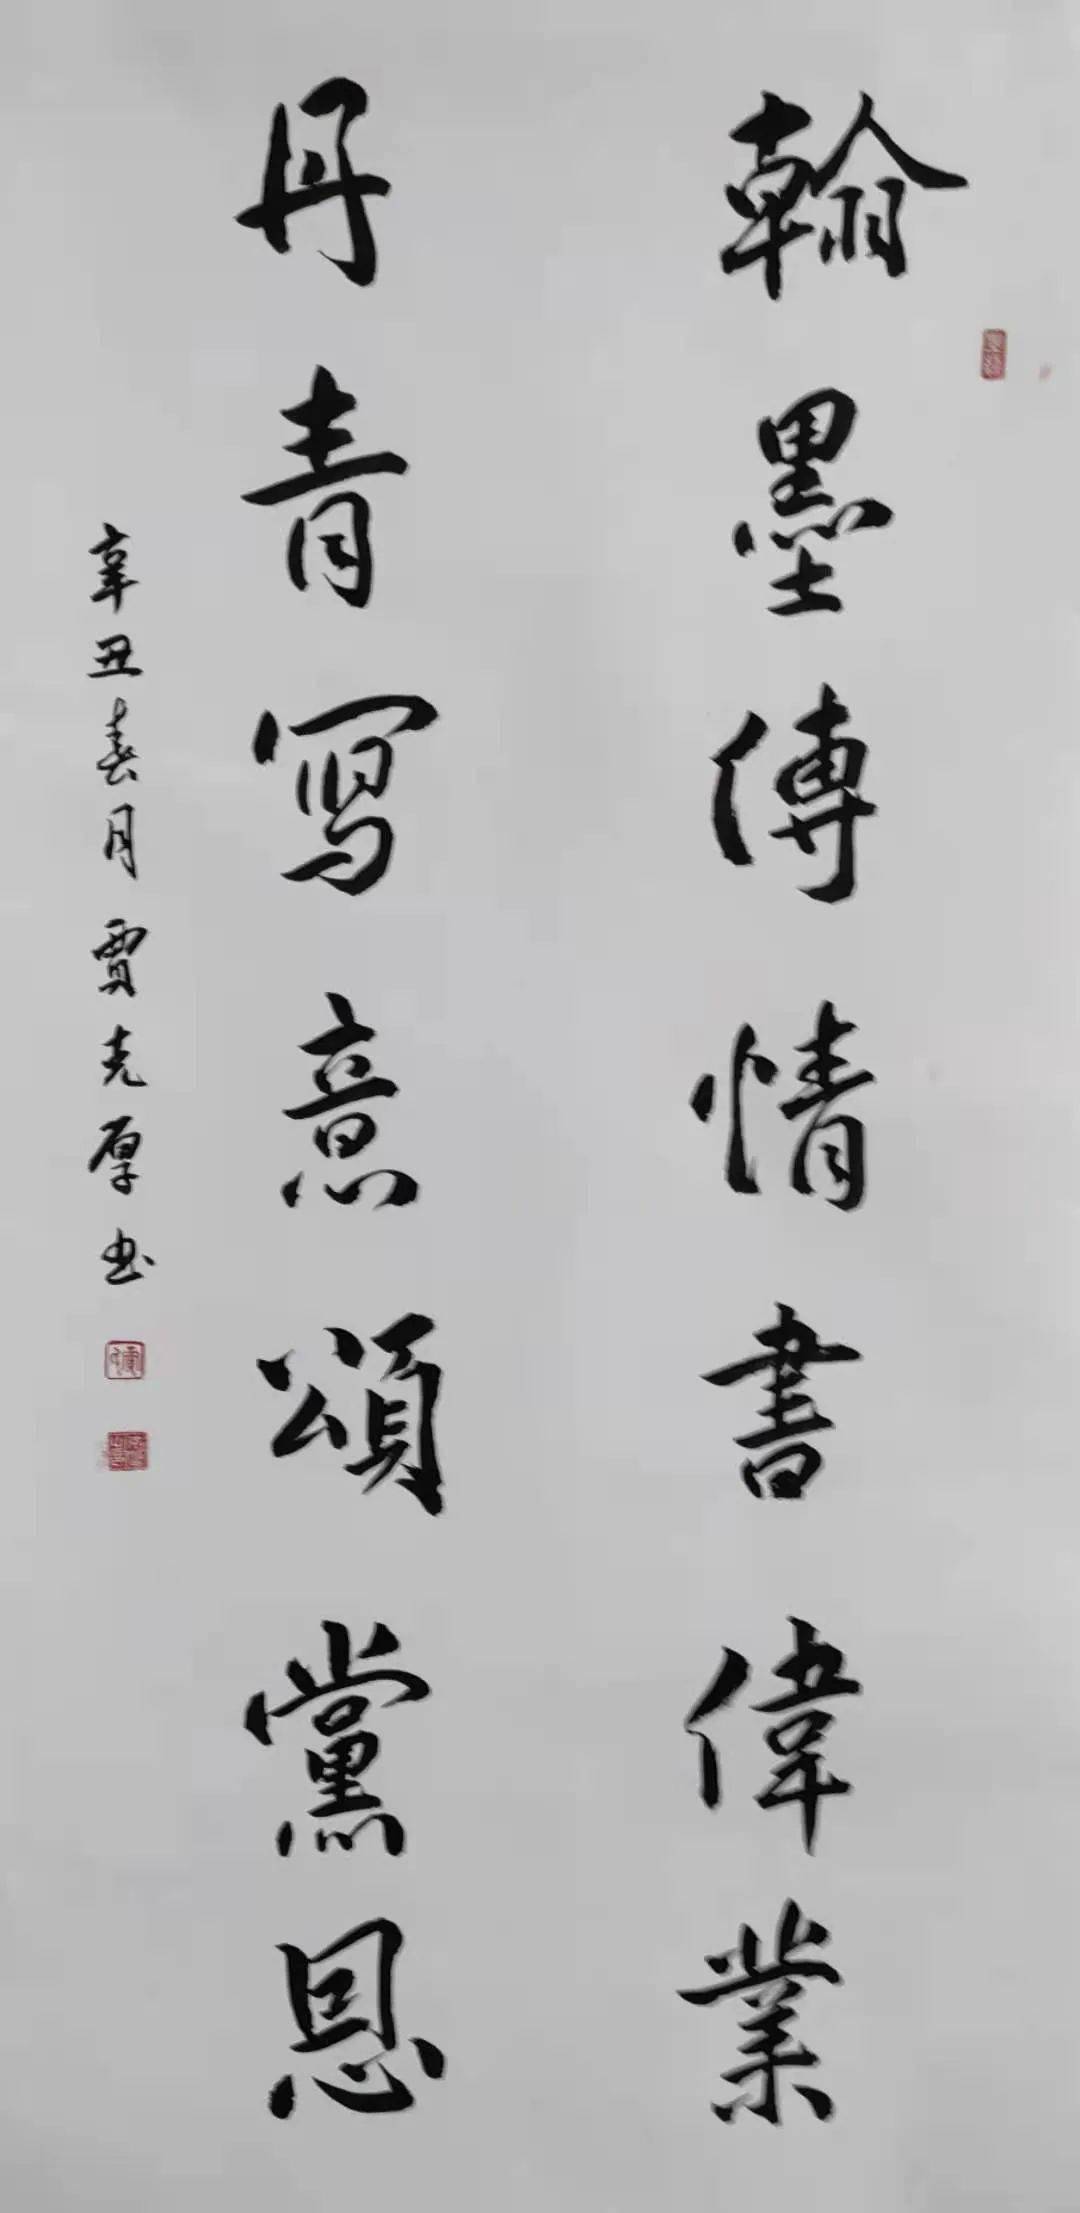 翰墨傳情書偉業
丹青寫意頌黨恩
辛丑春月賈克厚书